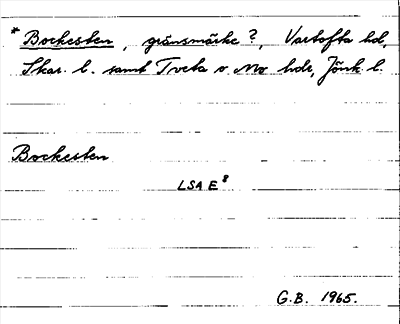 * Bockesten, gränsmärke?, Vartofta hd,
Skar. l. samt Tveta o Mo hdr, Jönk l.
Bockesten
LSA E8
G.B. 1965.